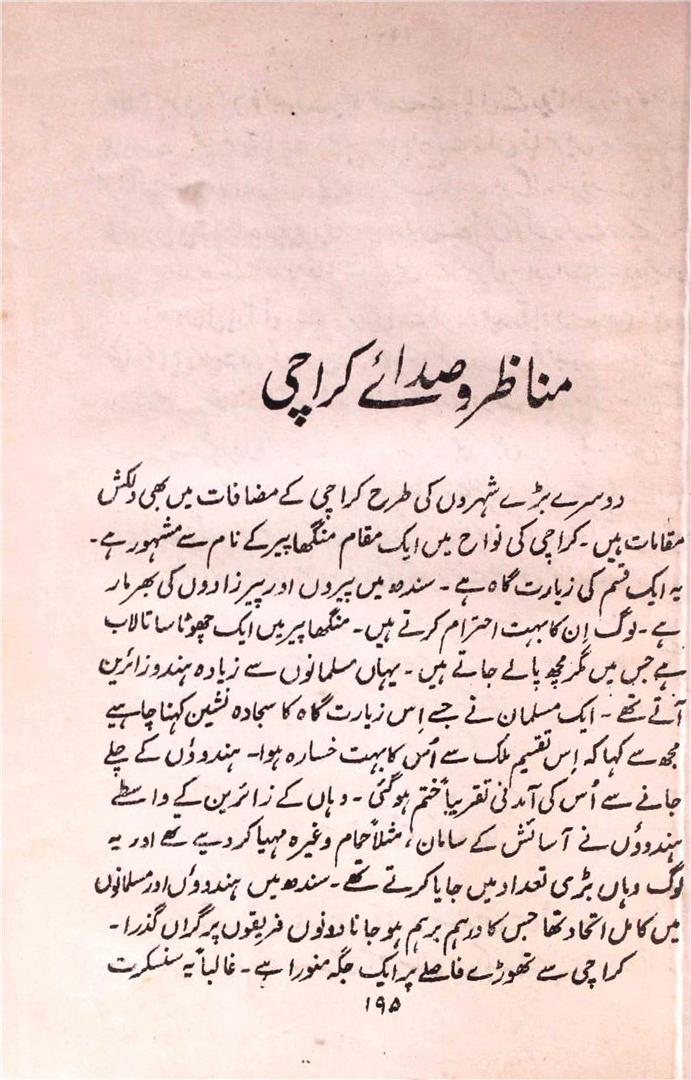 مناظر و صدائے کراچی
دوسرے بڑے شہروں کی طرح کراچی کے مضافات میں بھی دلکش
مقامات ہیں۔ کراچی کی نواح میں ایک مقام منگھا پیر کے نام سے مشہور ہے۔
یہ ایک قسم کی زیارت گاہ ہے۔ سندھ میں پیروں اور پیرزادوں کی بھرمار
ہے۔ لوگ اِن کا بہت احترام کرتے ہیں۔ منگھا پیر میں ایک چھوٹا سا تالاب
ہے جس میں مگرمچھ پائے جاتے ہیں۔ یہاں مسلمانوں سے زیادہ ہندو زائرین
آتے تھے۔ ایک مسلمان نے جسے اِس زیارت گاہ کا سجادہ نشین کہنا چاہیے
مجھ سے کہا کہ اِس تقسیم ملک سے اُس کا بہت خسارہ ہوا۔ ہندوؤں کے چلے
جانے سے اُس کی آمدنی تقریباً ختم ہو گئی۔ وہاں کے زائرین کے واسطے
ہندوؤں نے آسائش کے سامان، مثلاً حمام وغیرہ مہیا کر دیے تھے اور یہ
لوگ وہاں بڑی تعداد میں جایا کرتے تھے۔ سندھ میں ہندوؤں اور مسلمانوں
میں کامل اتحاد تھا جس کا درہم برہم ہو جانا دونوں فریقوں پر گراں گذرا۔
کراچی سے تھوڑے فاصلے پر ایک جگہ منورا ہے۔ غالباً یہ سنسکرت
۱۹۵